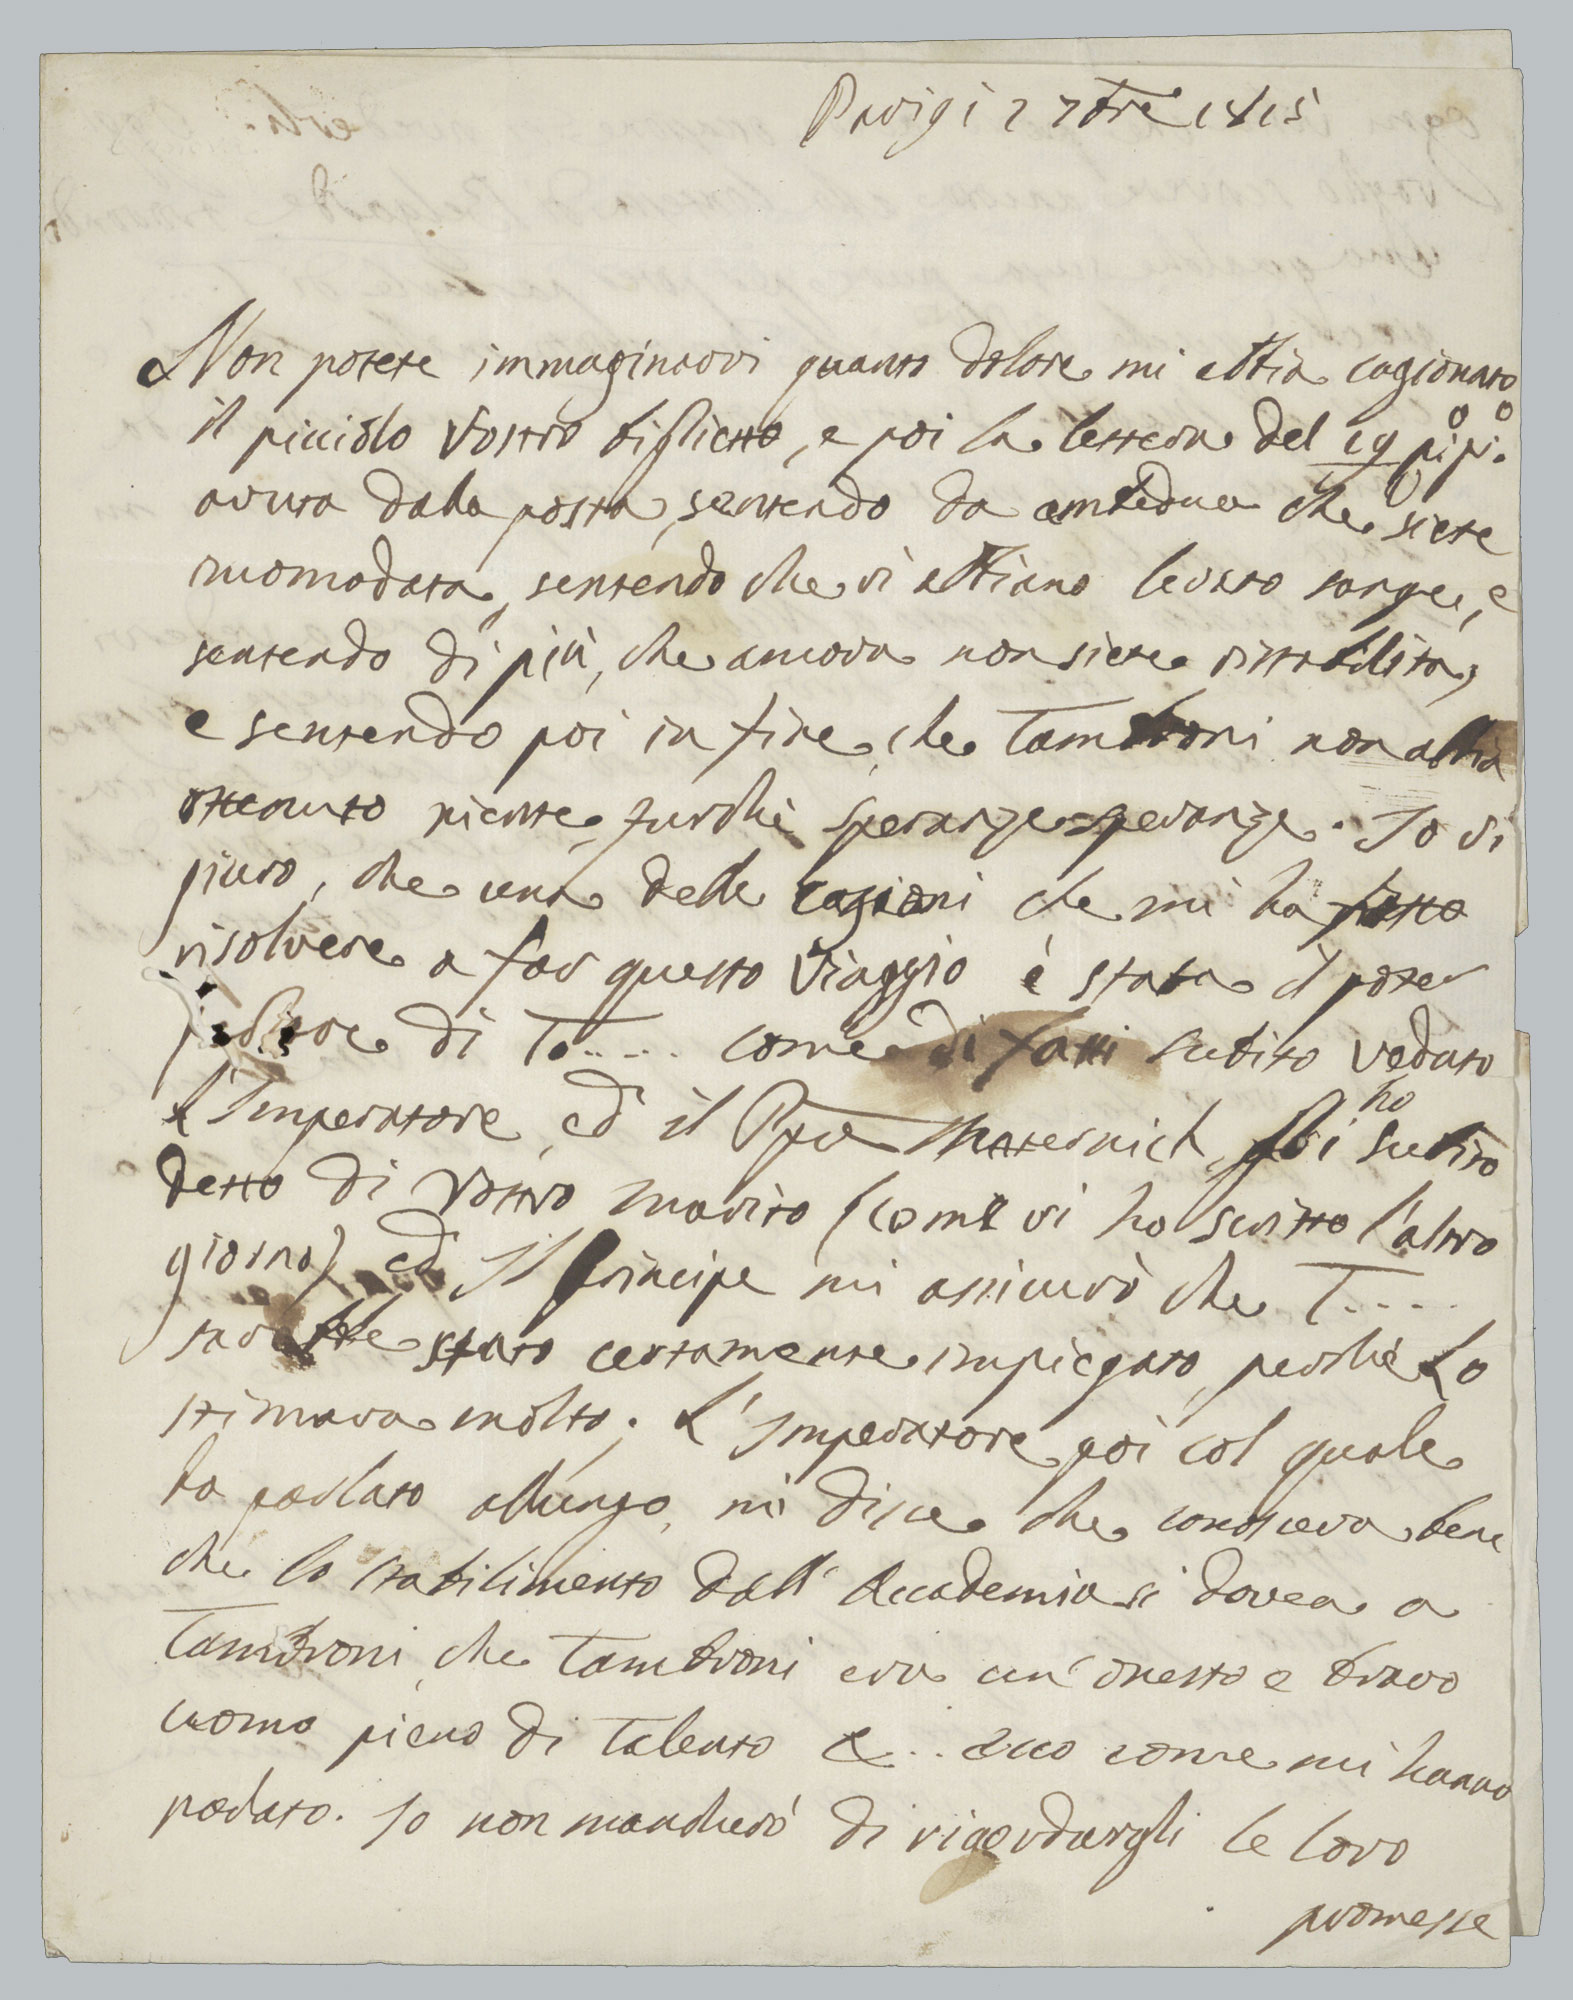 Parigi 2 7bre 1815
Non potete immaginarvi quanto dolore mi abbia cagionato
il picciolo vostro biglietto, e poi la lettera del 19 pº pº.
avuta dalla posta, sentendo da ambedue che siete
incomodata, sentendo che vi abbiano levato sangue, e
sentendo di più, che ancora non siete ristabilita,
e sentendo poi in fine, che Tambroni non abbia
ottenuto niente, furchè speranze speranze. Io vi
giuro, che una delle cagioni che mi ha fatto
risolvere a far questo viaggio è stata il poter
parlare di Ta..... come di fatti subito veduto
L'Imperatore, ed il Ppe Metternich, gli ho subito
detto di vostro marito (come vi ho scritto l'altro
giorno) ed Il Principe mi assicurò che T.....
sarebbe stato certamente impiegato, perchè Lo
stimava molto. L'Imperatore poi col quale
ho parlato allungo, mi disse che conosceva bene
che lo stabilimento dell'Accademia si dovea a
Tambroni, che Tambroni era un'onesto e bravo
uomo pieno di talento e... ecco come mi hanno
parlato. Io non mancherò di ricordargli le loro
promesse